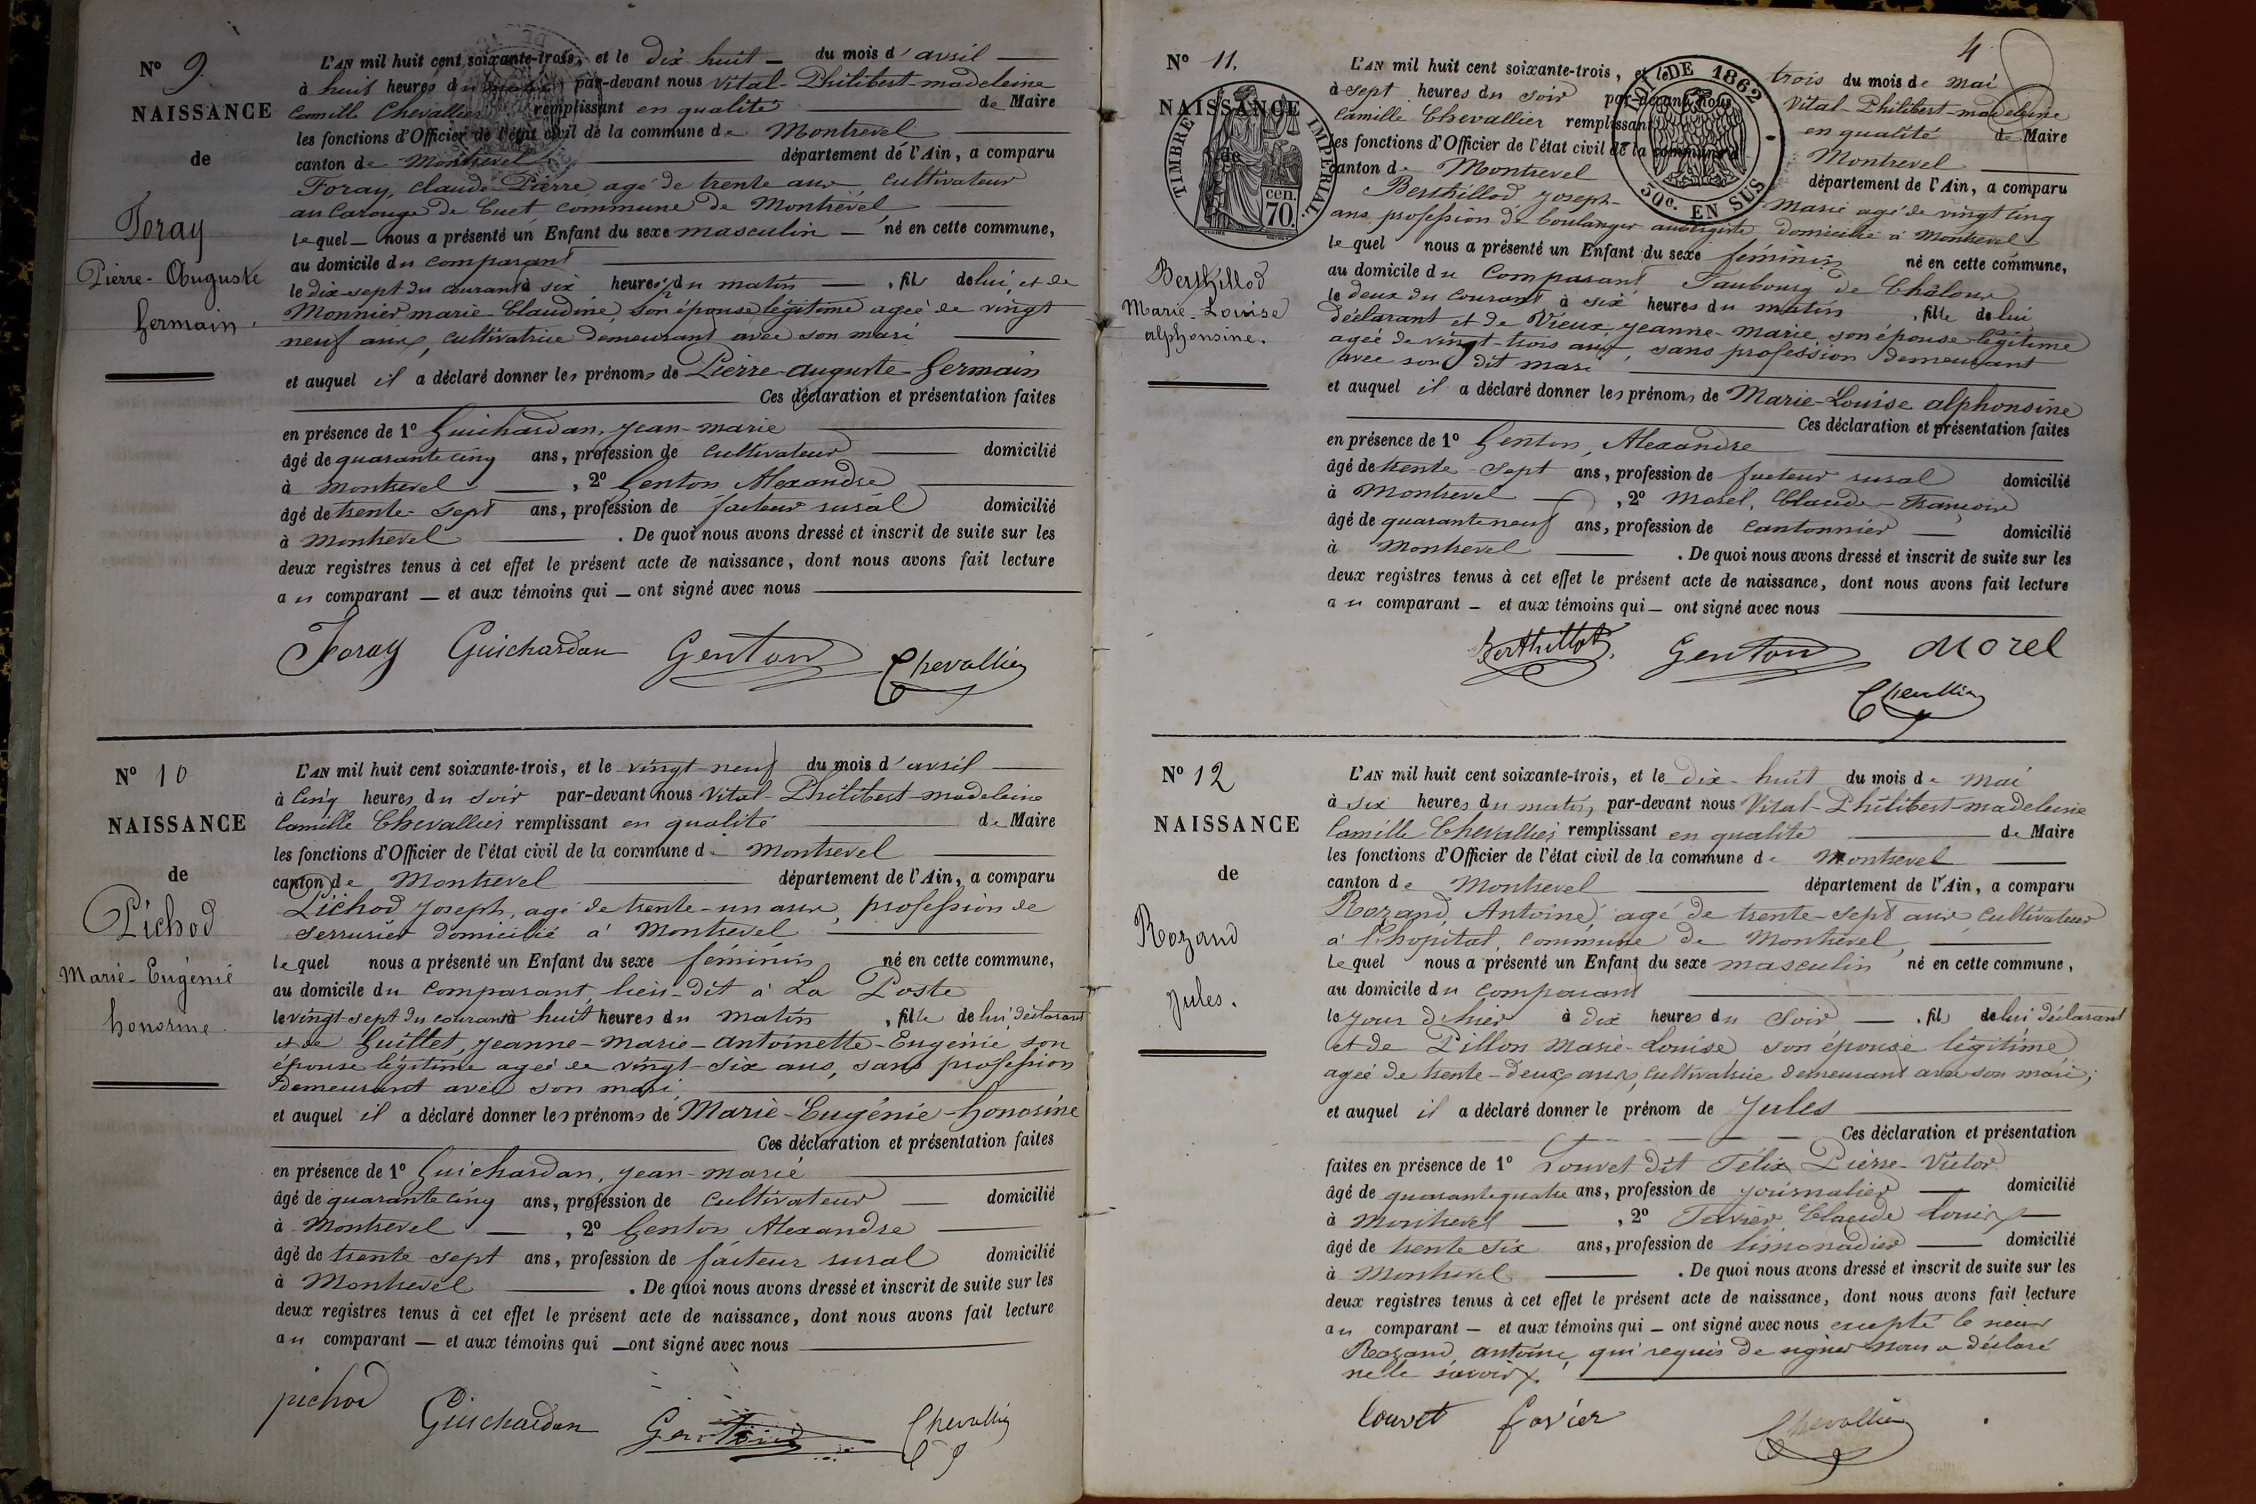 N° 9.
NAISSANCE
de
Foray
Pierre-Auguste
Germain.
L'AN mil huit cent soixante-trois, et le dix huit du mois d'avril
à huit heures du par-devant nous Vital-Philibert-madeleine
Camille Chevallier remplissant en qualité de Maire
les fonctions d'Officier de l'état civil de la commune de Montrevel
canton de Montrevel département de l'Ain, a comparu
Foray, claude-Pierre agé de trente ans, cultivateur
au Carouge de Cuet, commune de Montrevel
lequel nous a présenté un Enfant du sexe masculin né en cette commune,
au domicile du comparant
le dix-sept du courant à six heures du matin, fils de lui, et de
Monnier marie-Claudine, son épouse légitime agée de vingt
neuf ans, cultivatrice demeurant avec son mari
et auquel il a déclaré donner les prénoms de Pierre-auguste-Germain
Ces déclaration et présentation faites
en présence de 1° Guichardan, jean-marie
âgé de quarante cinq ans, profession de cultivateur domicilié
à Montrevel, 2° Genton Alexandre
âgé de trente-sept ans, profession de facteur rural domicilié
à Montrevel. De quoi nous avons dressé et inscrit de suite sur les
deux registres tenus à cet effet le présent acte de naissance, dont nous avons fait lecture
au comparant et aux témoins qui ont signé avec nous
Foray Guichardan Genton Chevallier
N° 10
NAISSANCE
de
Pichod
Marie-Eugénie
honorine.
L'AN mil huit cent soixante-trois, et le vingt-neuf du mois d'avril
à cinq heures du soir par-devant nous Vital-Philibert-madeleine
Camille Chevallier remplissant en qualité de Maire
les fonctions d'Officier de l'état civil de la commune de Montrevel
canton de Montrevel département de l'Ain, a comparu
Pichod Joseph, agé de trente-un ans, profession de
serrurier domicilié à Montrevel
lequel nous a présenté un Enfant du sexe féminin né en cette commune,
au domicile du comparant, lieu-dit à La Poste
le vingt-sept du courant à huit heures du matin, fille de lui déclarant
et de Guillet, jeanne-marie-antoinette-Eugénie son
épouse légitime agée de vingt-six ans, sans profession
demeurant avec son mari
et auquel il a déclaré donner les prénoms de Marie-Eugénie-honorine
Ces déclaration et présentation faites
en présence de 1° Guichardan, jean-marie
âgé de quarante cinq ans, profession de cultivateur domicilié
à Montrevel, 2° Genton Alexandre
âgé de trente sept ans, profession de facteur rural domicilié
à Montrevel. De quoi nous avons dressé et inscrit de suite sur les
deux registres tenus à cet effet le présent acte de naissance, dont nous avons fait lecture
au comparant et aux témoins qui ont signé avec nous
pichod Guichardan Genton Chevallier
4
N° 11.
NAISSANCE
de
TIMBRE IMPÉRIAL
70 cen.
DE 1862
50c. EN SUS
Berthillod
Marie-Louise
alphonsine.
L'AN mil huit cent soixante-trois, et le trois du mois de mai
à sept heures du soir par-devant nous Vital-Philibert-madeleine
Camille Chevallier remplissant en qualité de Maire
les fonctions d'Officier de l'état civil de la commune d Montrevel
canton de Montrevel département de l'Ain, a comparu
Berthillod Joseph-Marie agé de vingt cinq
ans profession de boulanger aubergiste domicilié à Montrevel
lequel nous a présenté un Enfant du sexe féminin né en cette commune,
au domicile du comparant Faubourg de Châlons
le deux du courant à six heures du matin, fille de lui
déclarant et de Vieux jeanne-marie, son épouse légitime
agée de vingt-trois ans, sans profession demeurant
avec son dit mari
et auquel il a déclaré donner les prénoms de Marie-Louise alphonsine
Ces déclaration et présentation faites
en présence de 1° Genton, Alexandre
âgé de trente-sept ans, profession de facteur rural domicilié
à Montrevel, 2° Morel, Claude-François
âgé de quarante neuf ans, profession de cantonnier domicilié
à Montrevel. De quoi nous avons dressé et inscrit de suite sur les
deux registres tenus à cet effet le présent acte de naissance, dont nous avons fait lecture
au comparant et aux témoins qui ont signé avec nous
Berthillot Genton Morel
Chevallier
N° 12
NAISSANCE
de
Rozand
Jules.
L'AN mil huit cent soixante-trois, et le dix-huit du mois de Mai
à six heures du matin, par-devant nous Vital-Philibert-madeleine
Camille Chevallier remplissant en qualité de Maire
les fonctions d'Officier de l'état civil de la commune de Montrevel
canton de Montrevel département de l'Ain, a comparu
Rozand, Antoine, agé de trente-sept ans, cultivateur
à l'hôpital, commune de Montrevel,
lequel nous a présenté un Enfant du sexe masculin né en cette commune,
au domicile du comparant
le jour d'hier à dix heures du soir, fils de lui déclarant
et de Pillon Marie-Louise, son épouse légitime
agée de trente-deux ans, cultivatrice demeurant avec son mari;
et auquel il a déclaré donner le prénom de Jules
Ces déclaration et présentation
faites en présence de 1° Louvet dit Félix Pierre-Victor
âgé de quarante quatre ans, profession de journalier domicilié
à Montrevel, 2° Favier, Claude Louis
âgé de trente six ans, profession de limonadier domicilié
à Montrevel. De quoi nous avons dressé et inscrit de suite sur les
deux registres tenus à cet effet le présent acte de naissance, dont nous avons fait lecture
au comparant et aux témoins qui ont signé avec nous excepté le sieur
Rozand antoine, qui requis de signer nous a déclaré
ne le savoir.
Louvet favier Chevallier